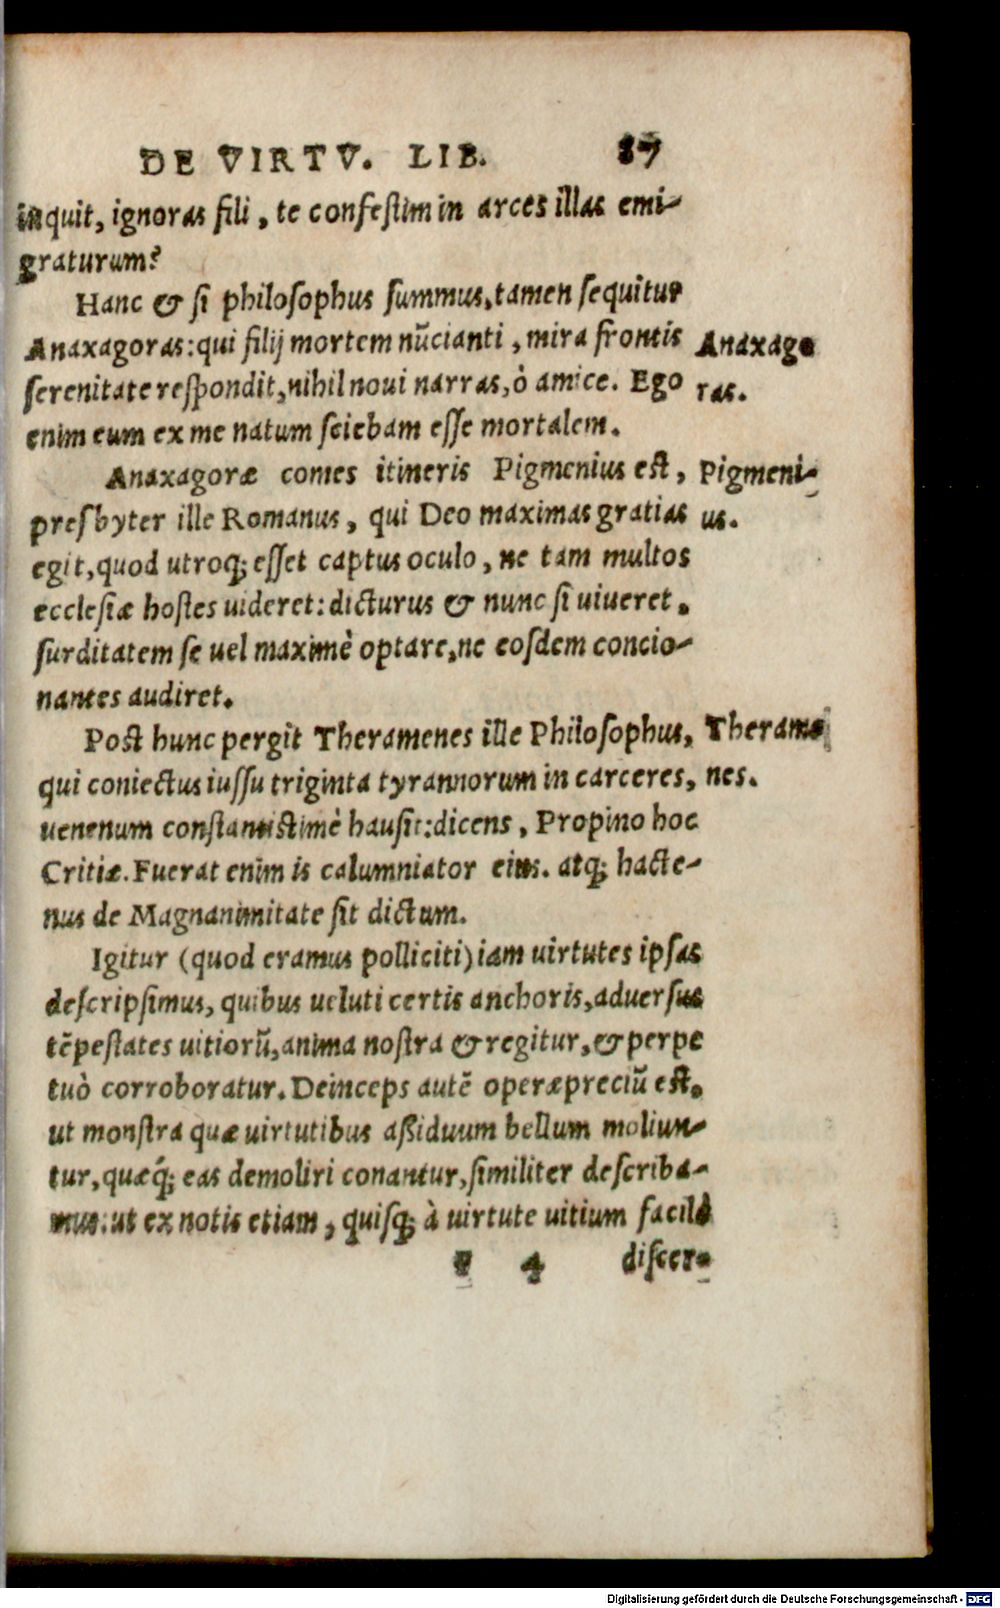 DE VIRTV. LIB. 87
inquit, ignoras fili, te confestim in arces illas emi-
graturum?
Hanc & si philosophus summus, tamen sequitur
Anaxagoras: qui filij mortem nũcianti, mira frontis
serenitate respondit, nihil noui narras, ò amice. Ego
enim eum ex me natum sciebam esse mortalem.
Anaxago
ras.
Anaxagoræ comes itineris Pigmenius est,
presbyter ille Romanus, qui Deo maximas gratias
egit, quod utroq; esset captus oculo, ne tam multos
ecclesiæ hostes uideret: dicturus & nunc si uiueret,
surditatem se uel maximè optare, ne eosdem concio-
nantes audiret.
Pigmeni-
us.
Post hunc pergit Theramenes ille Philosophus,
qui coniectus iussu triginta tyrannorum in carceres,
uenenum constantistimè hausit: dicens, Propino hoc
Critiæ. Fuerat enim is calumniator eius. atq; hacte-
nus de Magnanimitate sit dictum.
Therame
nes.
Igitur (quod eramus polliciti) iam uirtutes ipsas
descripsimus, quibus ueluti certis anchoris, aduersus
tẽpestates uitiorũ, anima nostra & regitur, & perpe
tuò corroboratur. Deinceps autẽ operæpreciũ est,
ut monstra quæ uirtutibus aßiduum bellum moliun-
tur, quæq́; eas demoliri conantur, similiter describa-
mus: ut ex notis etiam, quisq; à uirtute uitium facilè
4 discer-
Digitalisierung gefördert durch die Deutsche Forschungsgemeinschaft - DFG